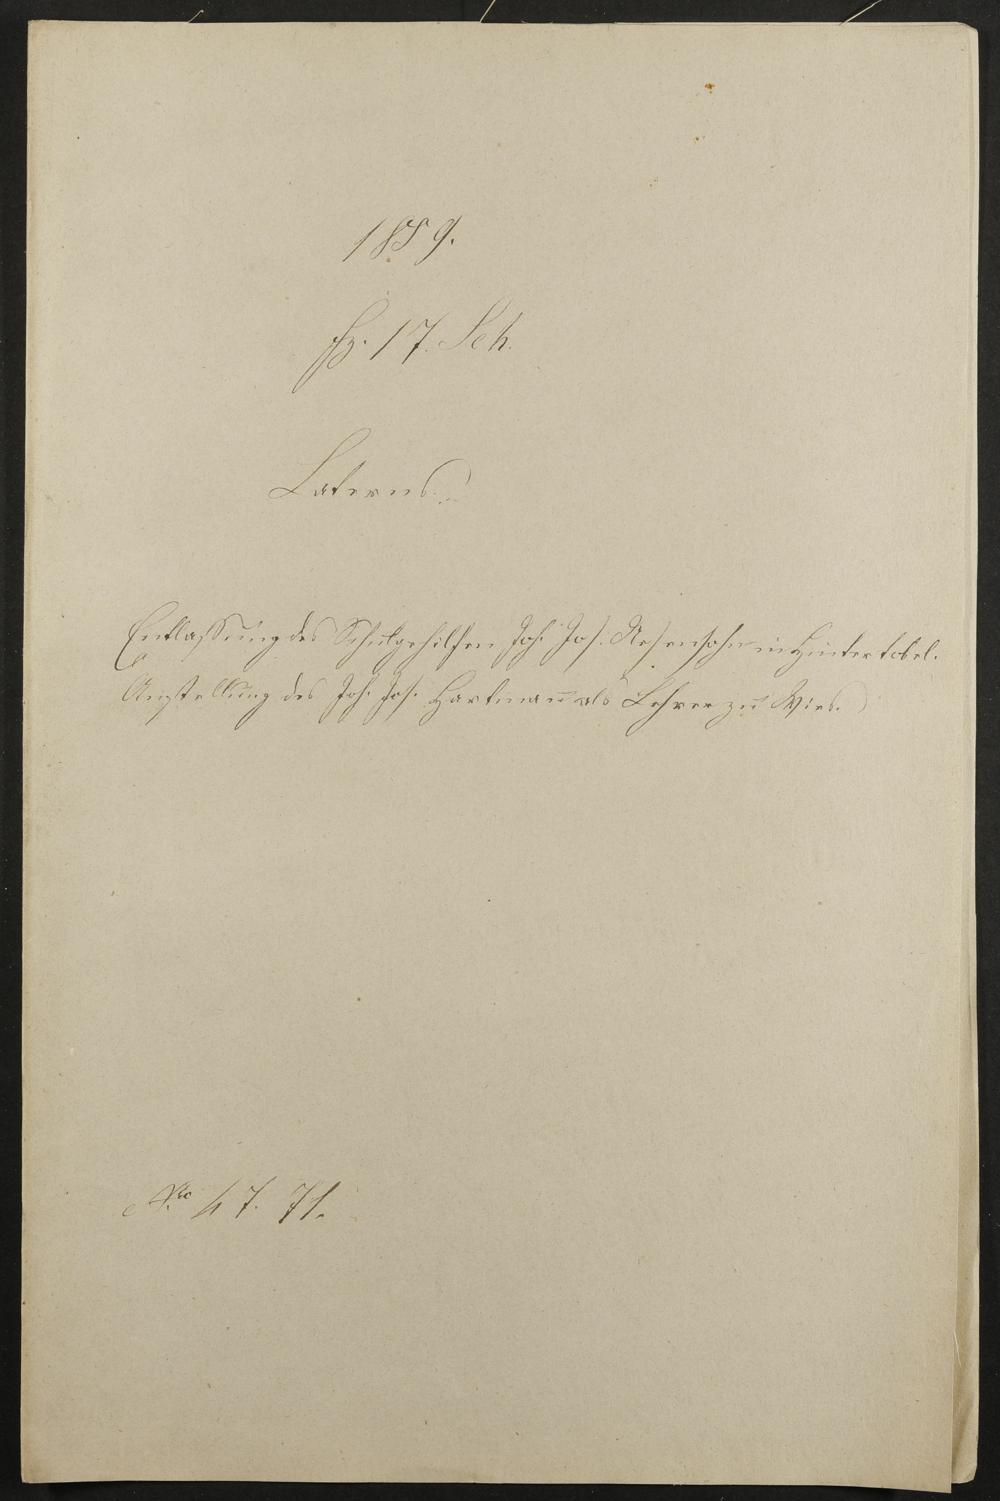 1859.
Fz. 17. Sch.
Laterns.
Entlassung des Schulgehilfen Joh. Jos. Nesensohn in Hintertobel.
Anstellung des Joh. Jos. Hartmañ als Lehrer zu Wies.
Nro 47. 71.